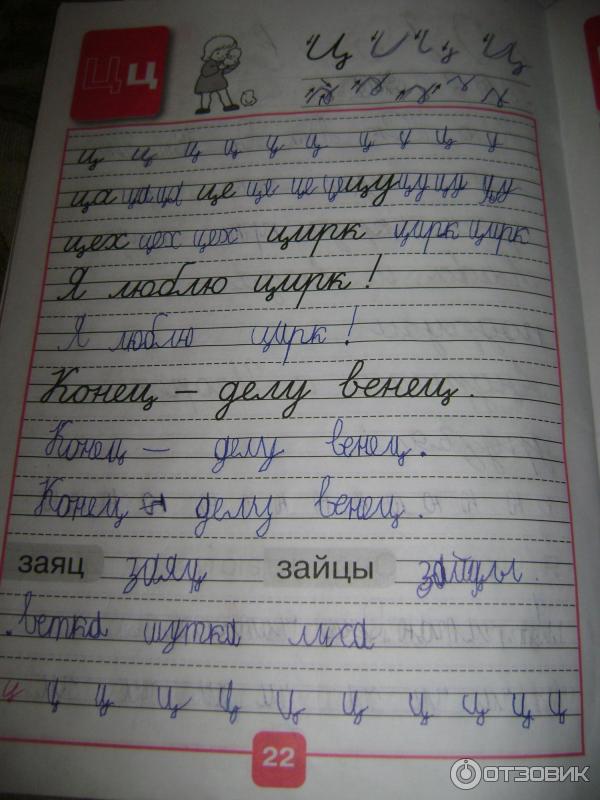 Цц Ц Ц ц Ц
ц ц ц ц ц ц ц ц ц ц
ца ца ца це це це це цу цу цу цу
цех цех цех цирк цирк цирк
Я люблю цирк!
Я люблю цирк!
Конец – делу венец.
Конец – делу венец.
Конец делу венец.
заяц заяц зайцы зайцы
ветка шутка лиса
ц ц ц ц ц ц ц ц ц ц ц
22
ОТЗОВИК